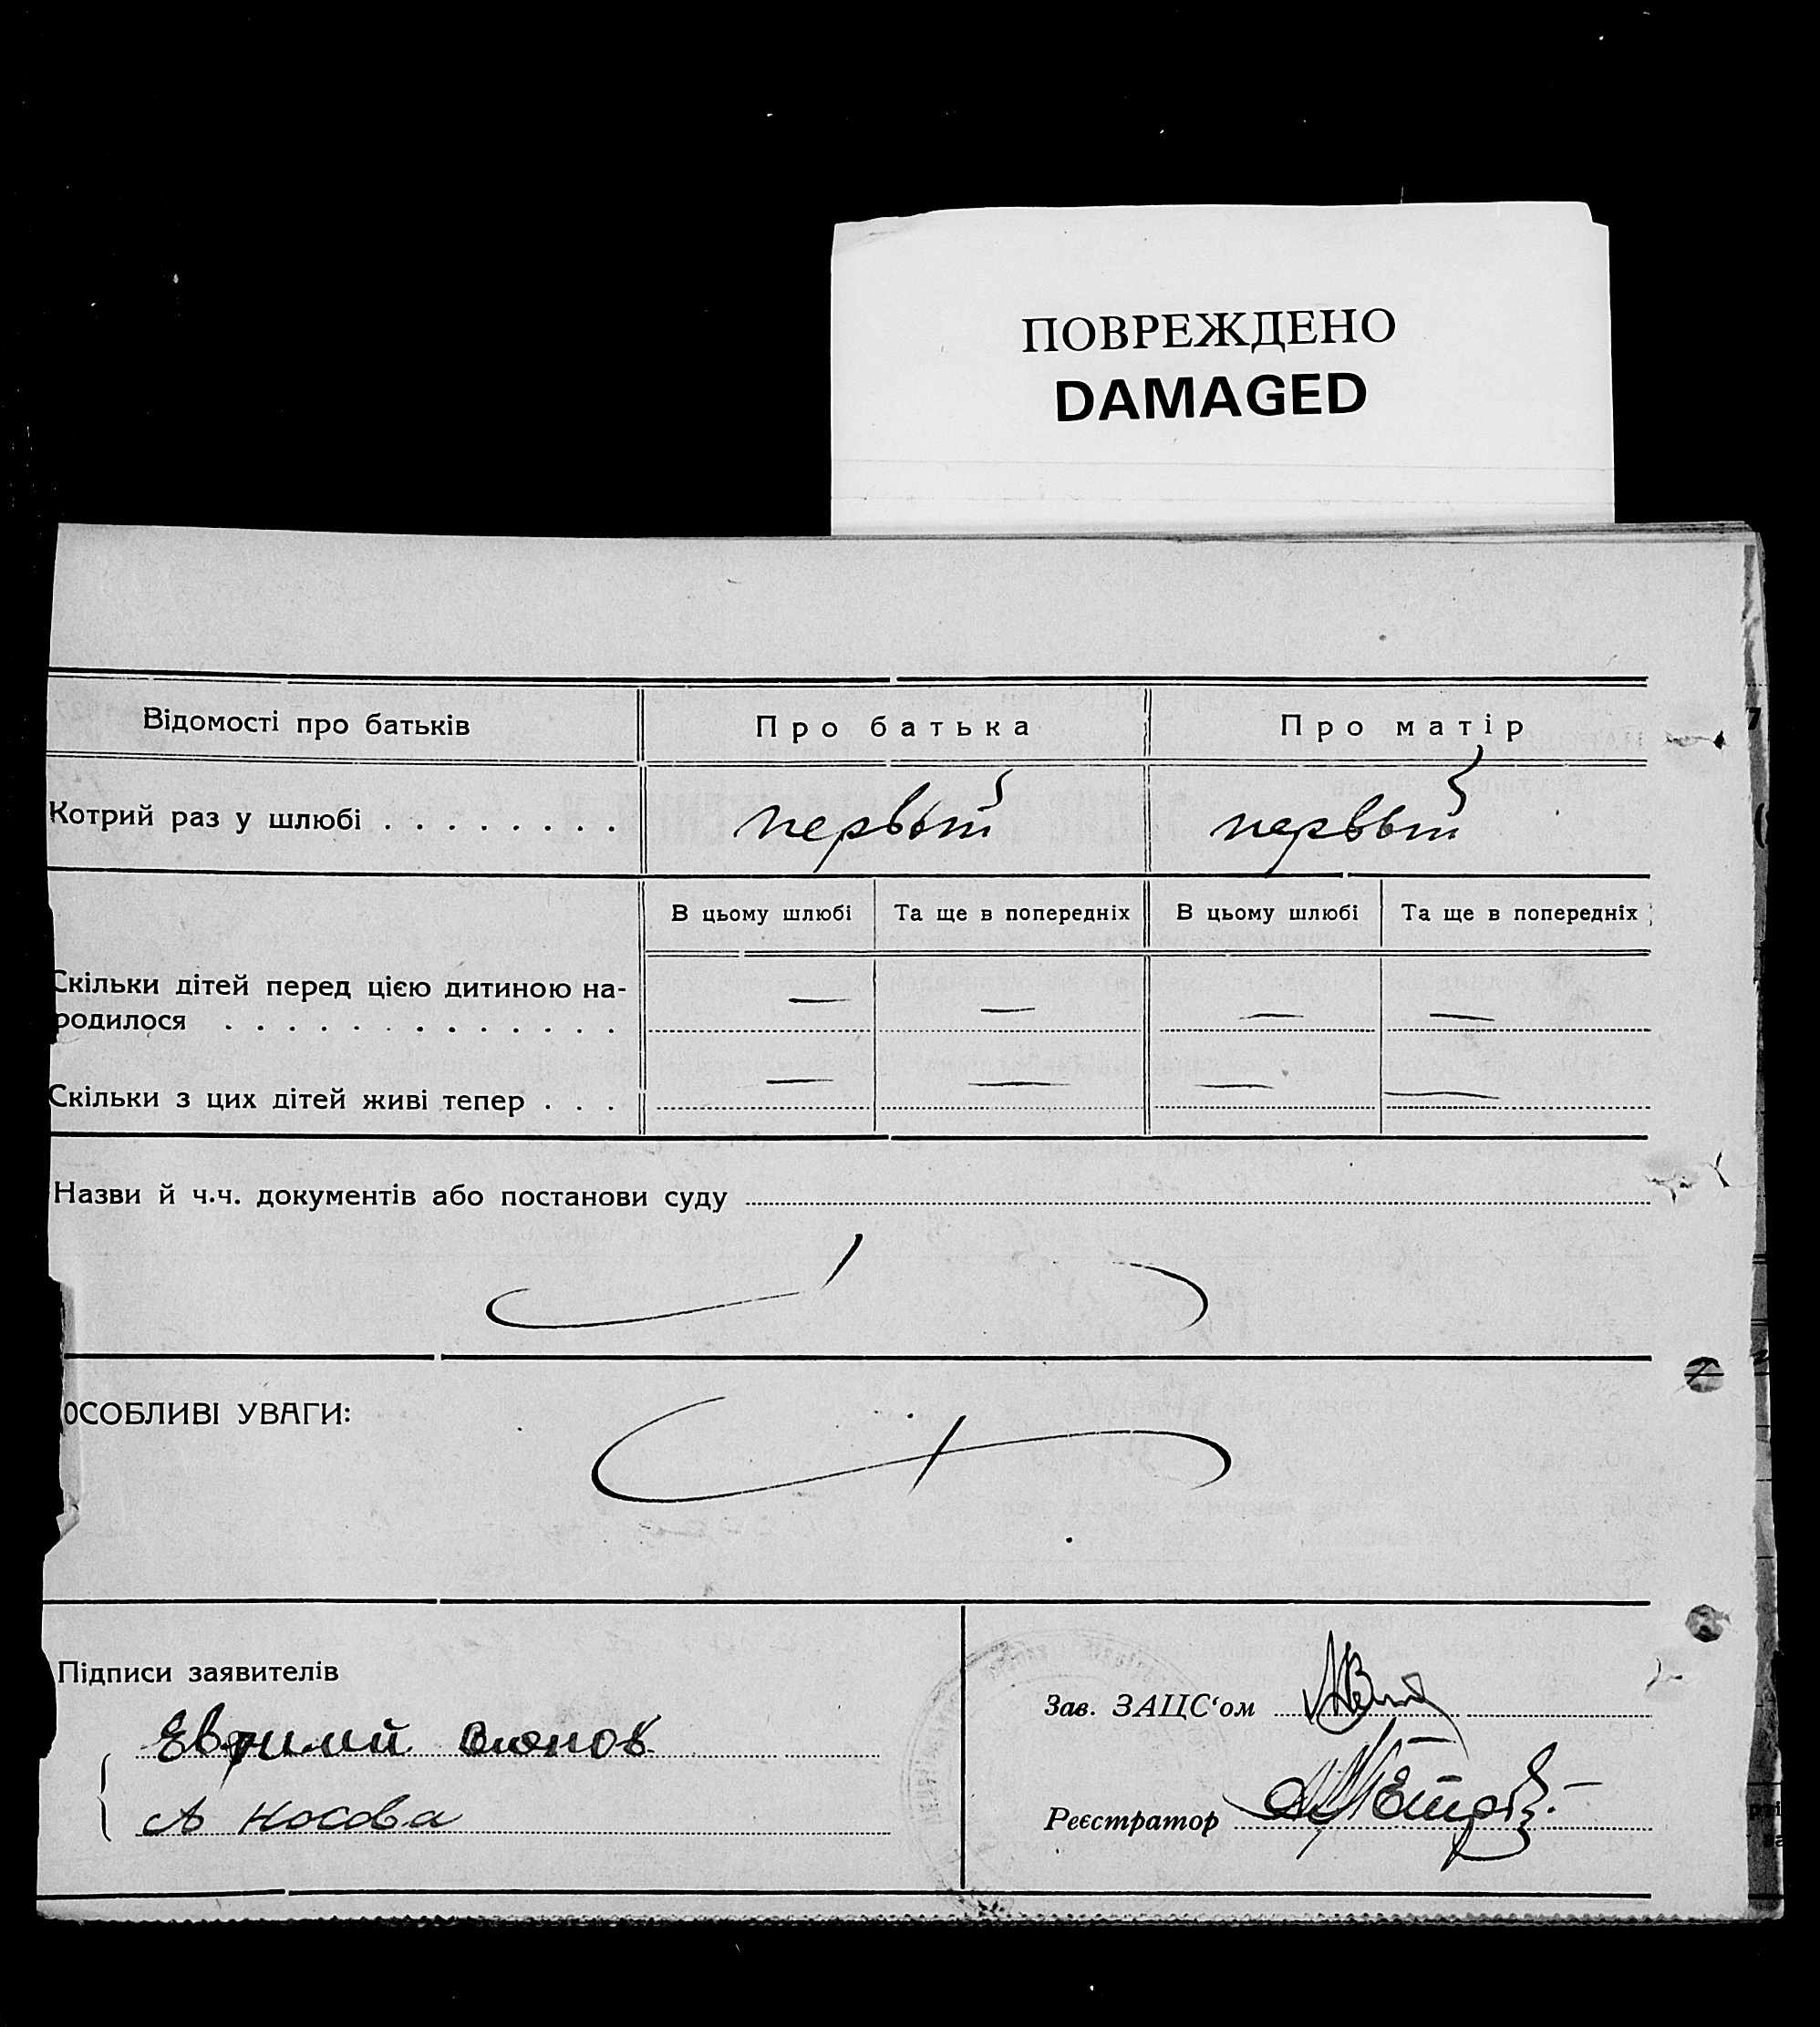 ПОВРЕЖДЕНО
DAMAGED
Відомості про батьків
Про батька
Про матір
Котрий раз у шлюбі . . . . . . . .
первый
первый
В цьому шлюбі
Та ще в попередніх
В цьому шлюбі
Та ще в попередніх
Скільки дітей перед цією дитиною на-
родилося . . . . . . . . . . . . .
— — — —
Скільки з цих дітей живі тепер . . .
— — — —
Назви й ч.ч. документів або постанови суду
ОСОБЛИВІ УВАГИ:
Підписи заявителів
А Носова
Зав. ЗАЦС‘ом
Реєстратор